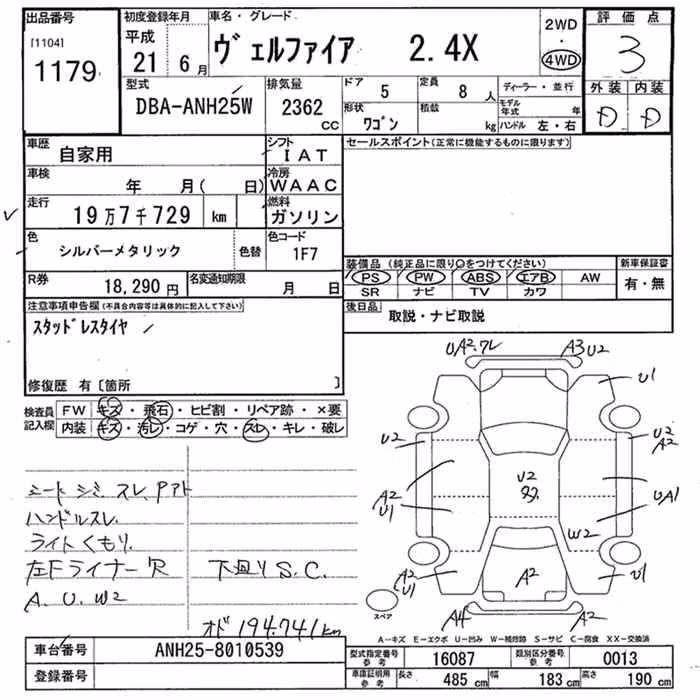 出品番号
[1104]
1179
初度登録年月
平成
21 6月
車名・グレード
ヴェルファイア 2.4X
2WD
・
4WD
評価点
3
型式
DBA-ANH25W
排気量
2362
cc
ドア 5
定員 8人
形状
ワゴン
積載
kg
ディーラー・並行
モデル年式 年
ハンドル 左・右
外装 内装
D D
車歴
自家用
シフト
IAT
セールスポイント(正常に機能するものに限ります)
車検
年 月( 日)
冷房
WAAC
走行
19万7千729 km
燃料
ガソリン
色
シルバーメタリック
色替
色コード
1F7
装備品(純正品に限り○をつけてください)
新車保証書
PS PW ABS エアB AW
有・無
SR ナビ TV カワ
R券
18,290円
名変通知期限
月 日
後日品
取説・ナビ取説
注意事項申告欄(不具合内容等は具体的に記入して下さい)
スタッドレスタイヤ
修復歴 有[箇所 ]
検査員
記入欄
FW キズ・飛石・ヒビ割・リペア跡・×要
内装 キズ・汚レ・コゲ・穴・スレ・キレ・破レ
シート シミ スレ、
ハンドルスレ.
ライトくもり.
左Fライナー 下廻りS.C.
A. U. W2
オド 194.741km
UA2.ワレ
A3 U2
U1
U2
U2
A2
A2
U1
U2
UA1
W2
A2
U1
A2
U1
A4
A2
スペア
A-キズ E-エクボ U-凹み W-補修跡 S-サビ C-腐食 XX-交換済
車台番号
ANH25-8010539
登録番号
型式指定番号
参考
16087
類別区分番号
参考
0013
車庫証明用
参考
長さ 485 cm
幅 183 cm
高さ 190 cm